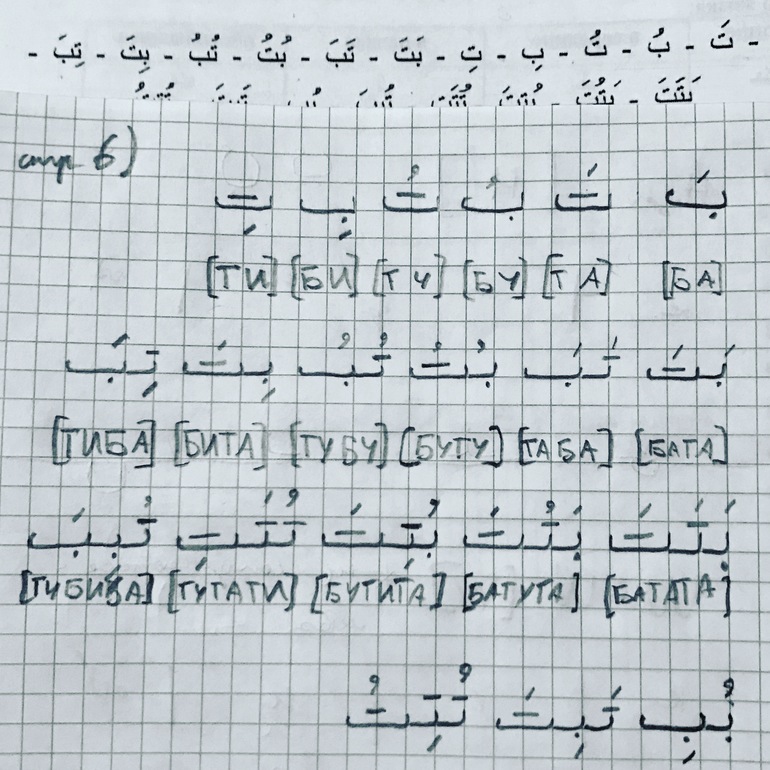 - تَ - بُ - تُ - بِ - تِ - بَتَ - تَبَ - بُتُ - تُبُ - بِتَ - تِبَ -
стр 6)
بَ تَ بُ تُ بِ تِ
[ТИ] [БИ] [ТУ] [БУ] [ТА] [БА]
بَتَ تَبَ بُتُ تُبُ بِتَ تِبَ
[ТИБА] [БИТА] [ТУБУ] [БУТУ] [ТАБА] [БАТА]
بَتَتَ بَتُتَ بُتِتَ تُتَتِ تُبِبَ
[ТУБИБА] [ТУТАТИ] [БУТИТА] [БАТУТА] [БАТАТА]
بُبِ تَبِتَ تُتِتُ